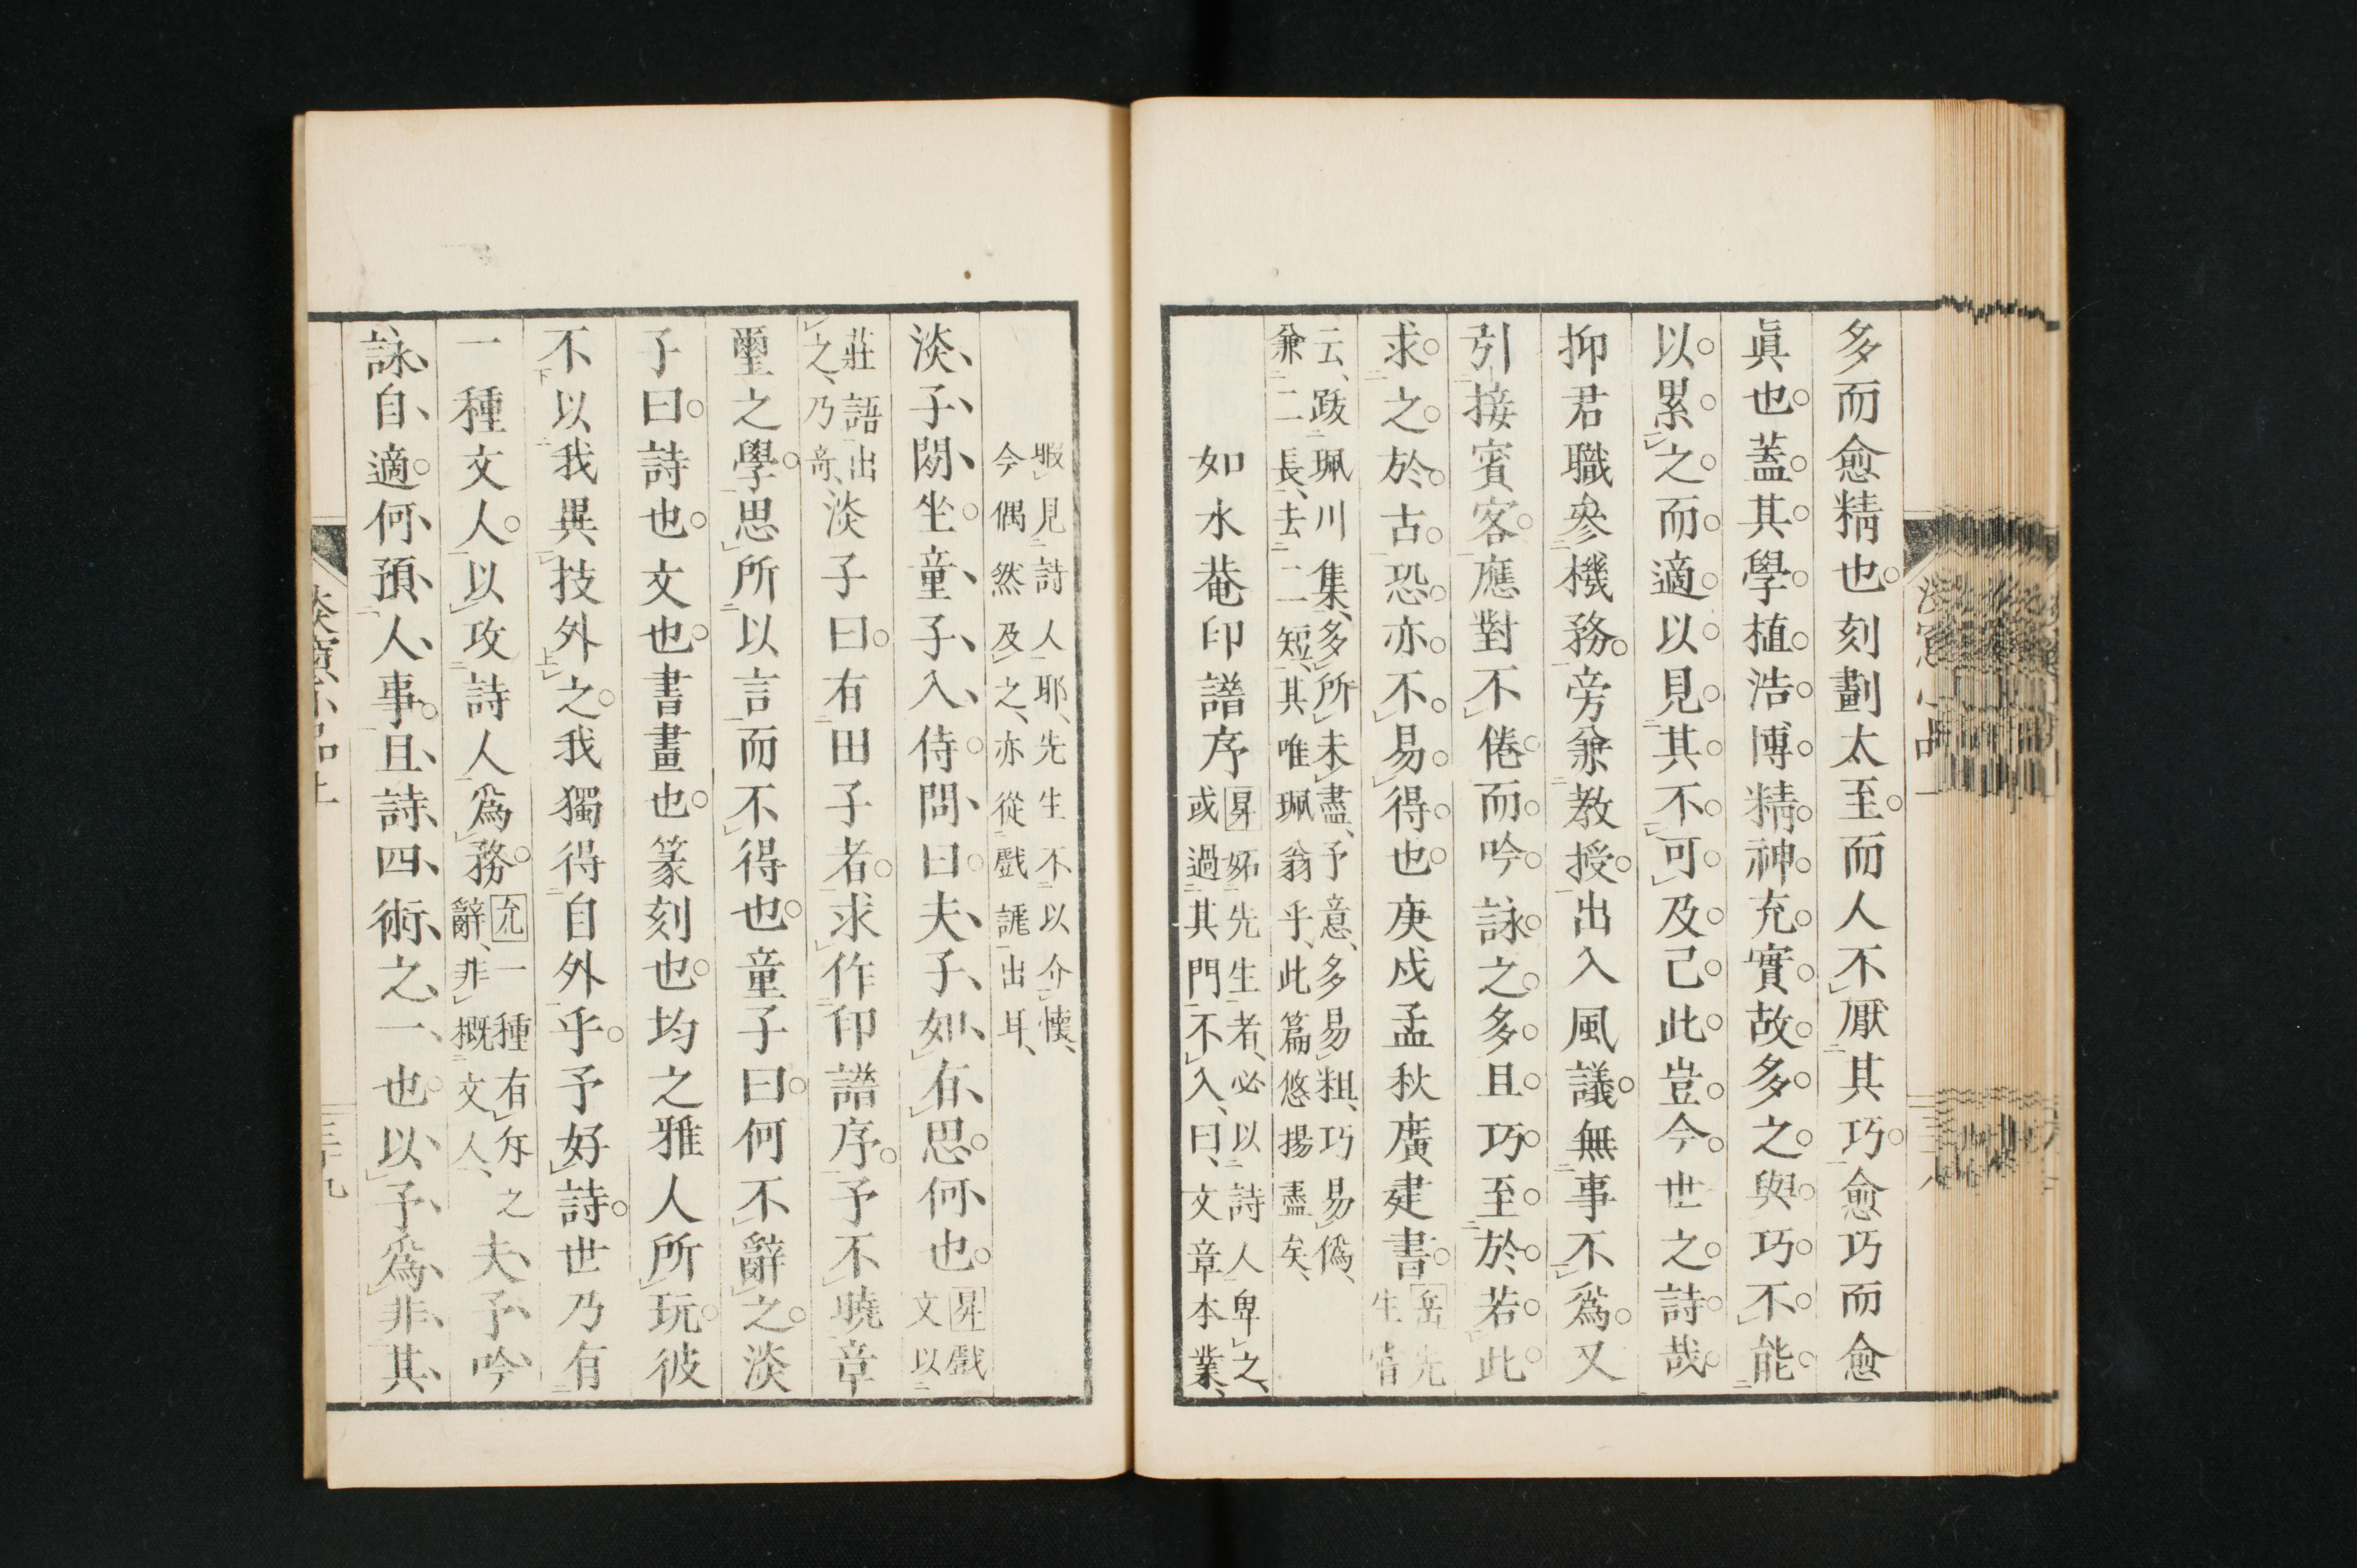 多而愈精也刻劃太至而人不厭其巧愈巧而愈
眞也蓋其學植浩博精神充實故多之與巧不能
以累之而適以見其不可及己此豈今世之詩哉
抑君職參機務旁兼教授出入風議無事不爲又
引接賓客應對不倦而吟詠之多且巧至於若此
求之於古恐亦不易得也庚戍孟秋廣建書
岳先
生嘗
云、跋珮川集、多所未盡、予意、多易粗、巧易僞、
兼二長、去二短、其唯珮翁乎、此篇悠揚盡矣、
如水菴印譜序
昇妬先生者、必以詩人卑之、
或過其門不入、曰、文章本業、
暇見詩人耶、先生不以介懷、
今偶然及之、亦從戲謔出耳、
淡子閑坐童子入侍問曰夫子如有思何也
昇戲
文以
莊語出
之、乃奇、
淡子曰有田子者求作印譜序予不曉章
璽之學思所以言而不得也童子曰何不辭之淡
子曰詩也文也書畫也篆刻也均之雅人所玩彼
不以我異技外之我獨得自外乎予好詩世乃有
一種文人以攻詩人爲務
允一種有斧之
辭、非概文人、
夫予吟
詠自適何預人事且詩四術之一也以予爲非其